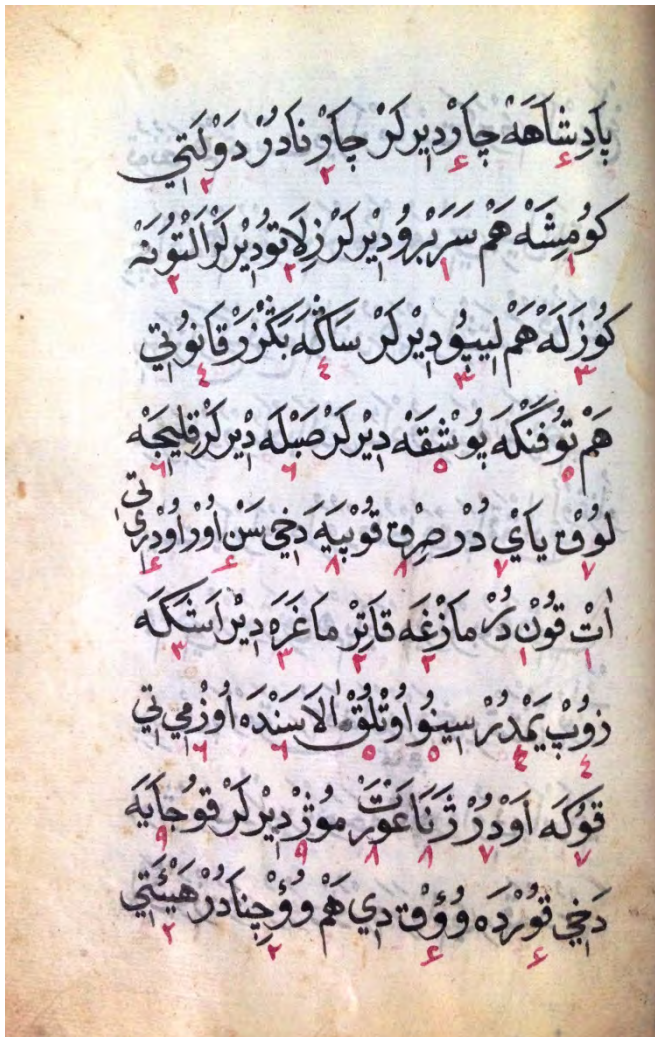 بَادِشَاهَهْ چَارْ دِيرلَرْ چَارْنَادُرْ دَوْلَتِي
كُومِشَهْ هَمْ سَرَبْرُو دِيْرلَرْ زِلَاتُو دِيْرلَرْ اَلْتُونَهْ
كُوزَلَهْ هَمْ لِيپُو دِيْرلَرْ سَاكَهْ بَكْزَرْ قَانُونِي
هَمْ تُوفَنْكَهَ پُوشْقَهْ دِيْرلَرْ صَبْلَه دِيْرلَرْ قِلِيجَهْ
لُوقْ يَايْ دُرْ صِرْقْ قُوپِيَهْ دَخِي سَنْ اُورْ اُودْرِي تِي
اٰتْ قُونْ دُرْ مَازْغَه قَاتِرْ مَاغَرَه دِيْر اَشَكَه
زُوبْ يَمْدُرْ سِينُو اُوتْلُقْ اٰلَاسَنْدَه اُوزْمِي تِي
قُوكَه اَوْدُرْ ژَنَا عَوْرَتْ مُوژْ دِيْرلَرْ قُوجَايَه
دَخِي قُورْدَه وُوُقْ دِي هَمْ وُوُچِنَادُرْ هَيْئَتِي